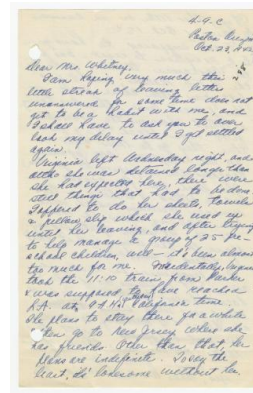 4-9-C
Poston, Arizona
Oct. 23, 1942
Dear Mrs. Whitney:
I am hoping very much this
little streak of leaving letters
unanswered for some time does not
get to be a habit with me, and
I shall have to ask you to over
look my delay until I get settled
again.
Virginia left Wednesday night, and
altho she was detained longer than
she had expected here, there were
still things that had to be done
I happened to do her sheets, towels
& pillow slip which she used up
until her leaving, and after trying
to help manage a group of 25 pre-
school children, well - it's been almost
too much for me. Incidentally, Virginia
took the 11:10 train from Parker
& was supposed to have reached
L.A. at
time
She plans to stay there for a while
then go to New Jersey where she
has friends. Other than that, her
plans are indefinite. To say the
least, it's lonesome without her.